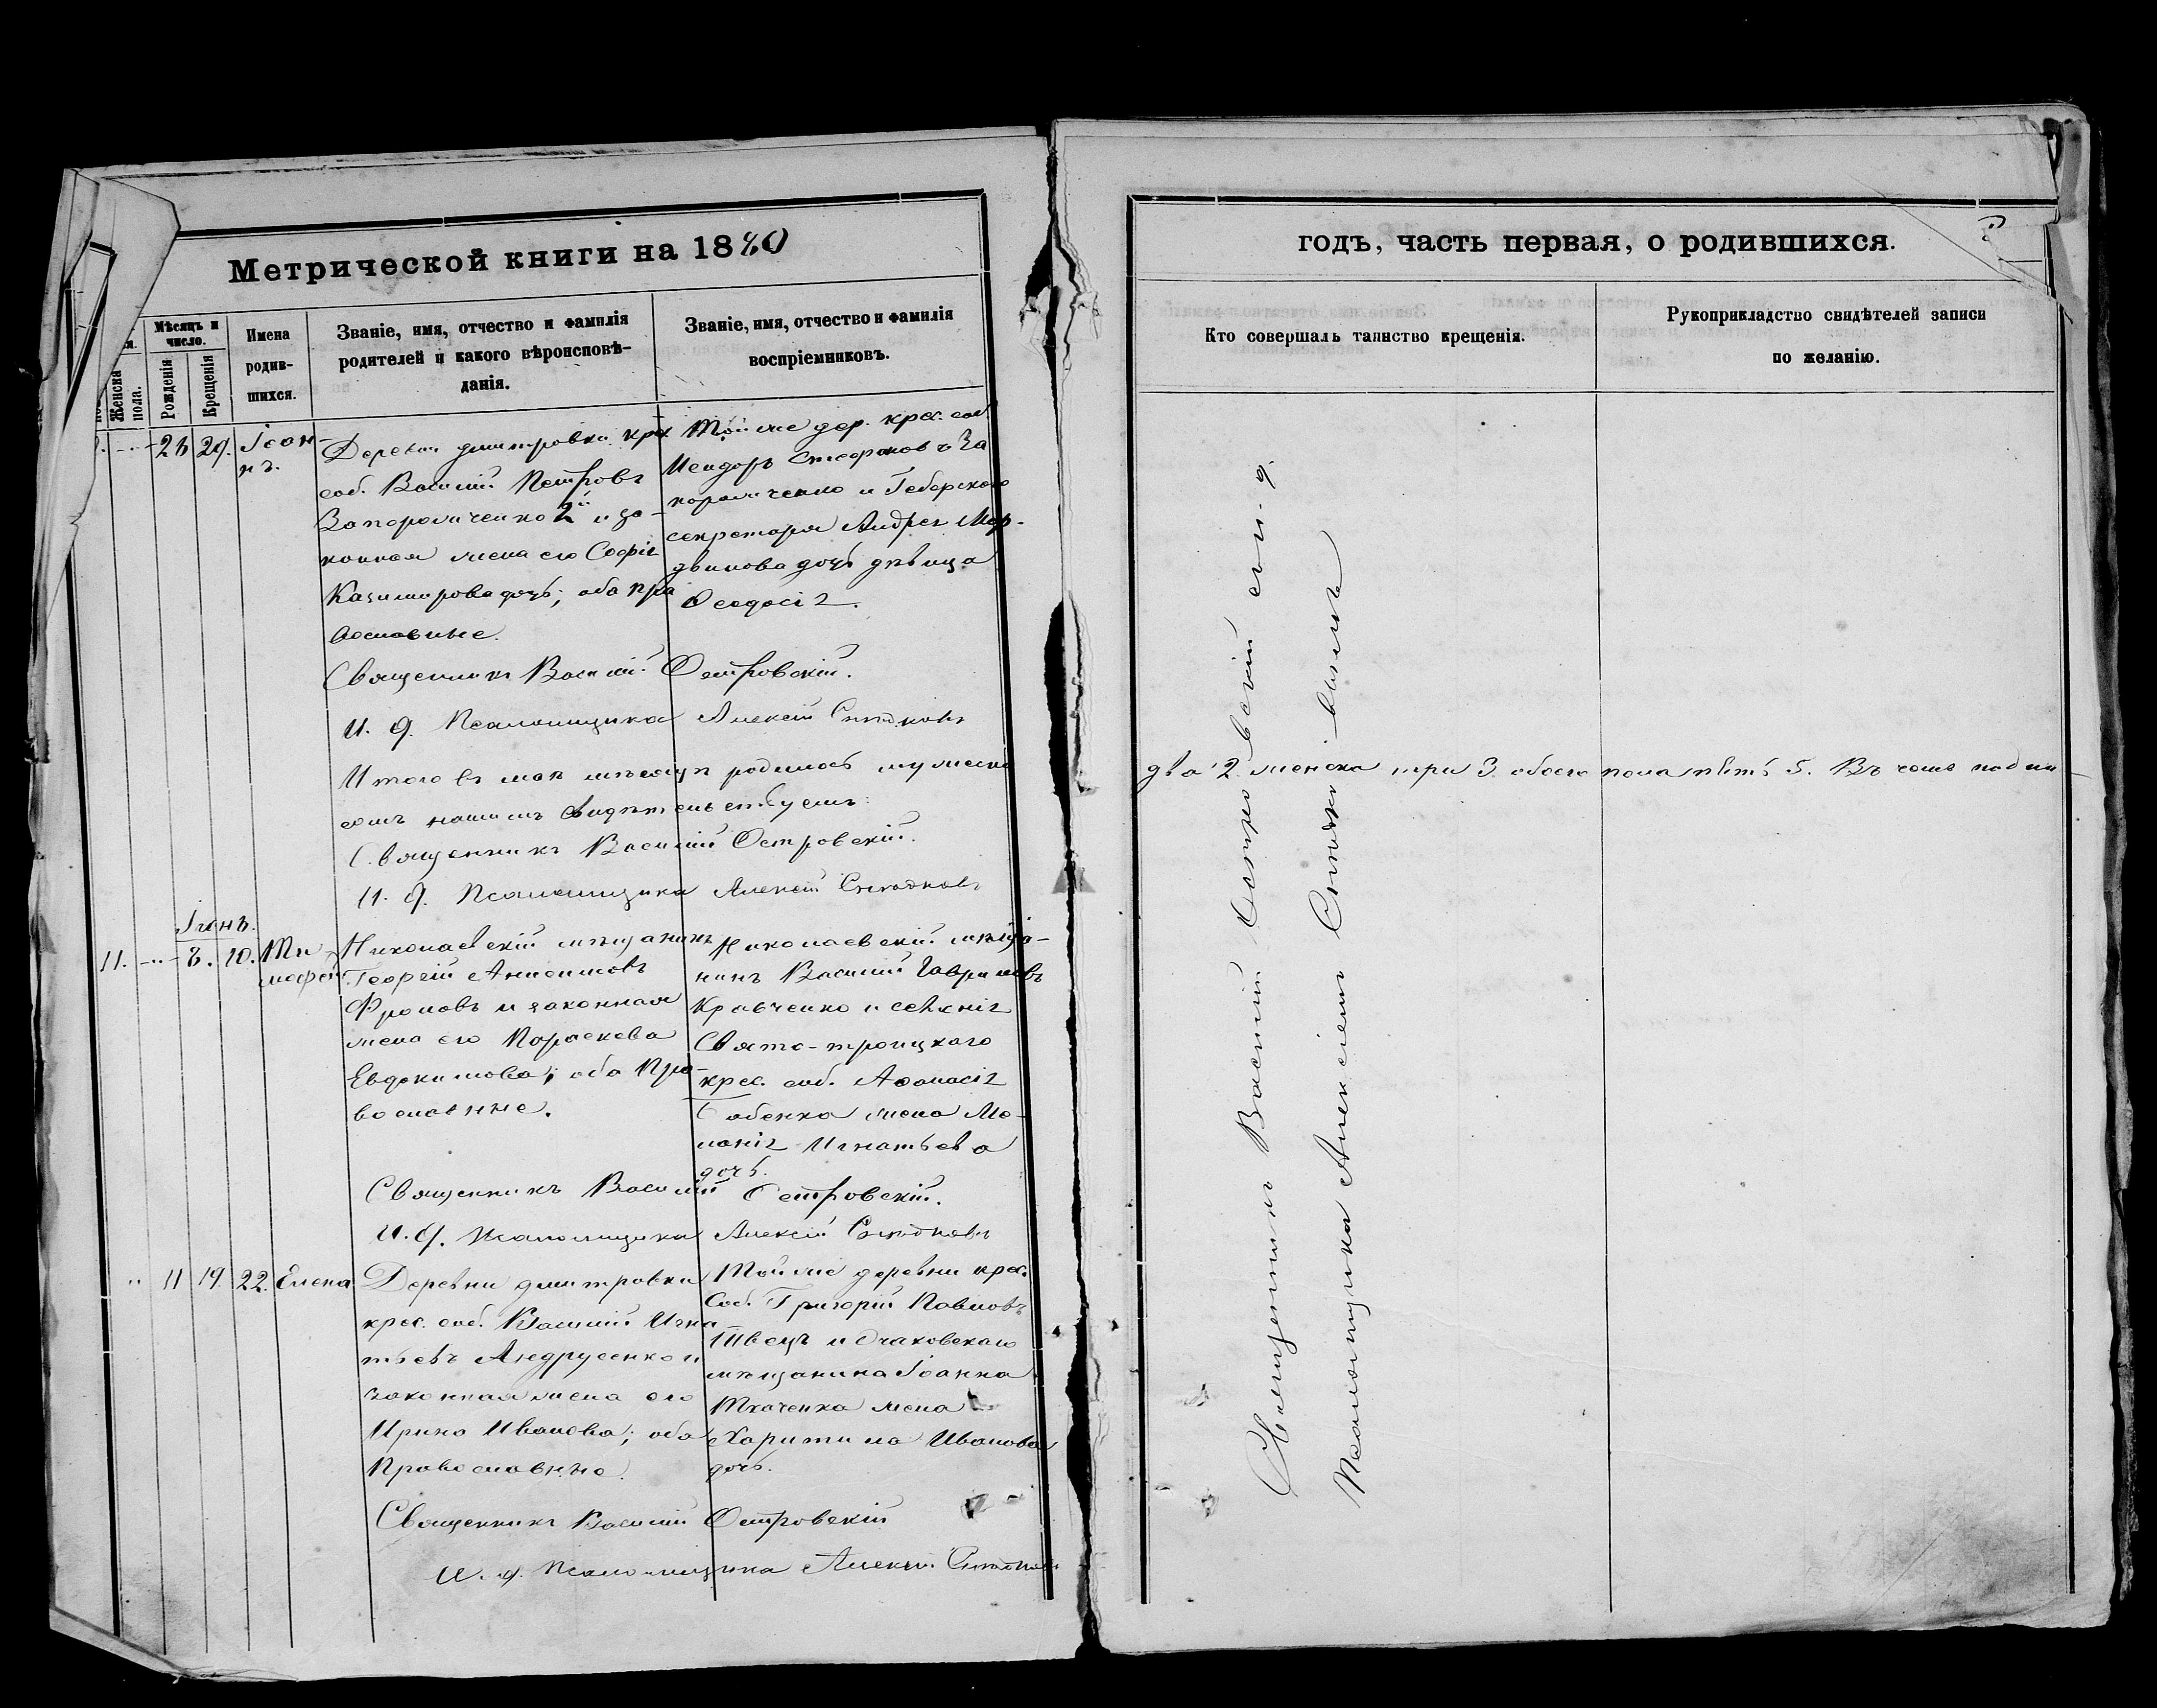 Метрической книги на 1880
годъ, часть первая, о родившихся.
Мѣсяцъ и число.
Женска пола.
Рожденія
Крещенія
Имена родив-
шихся.
Званіе, имя, отчество и фамилія
родителей и какого вѣроисповѣ-
данія.
Званіе, имя, отчество и фамилія
воспріемниковъ.
Кто совершалъ таинство крещенія.
Рукоприкладство свидѣтелей записи
по желанію.
29. Іоан-
нъ.
Деревни Дмитровки крес.
соб. Василій Петровъ
Запорожченко 2й и за-
конная жена его Софія
Казимирова дочь; оба пра
вославные.
Той же дер. крес. соб.
Исидоръ Стефановъ За
порожченко и Губерскаго
секретаря Андрея Мор-
двинова дочь дѣвица
Ѳеодосія.
Священникъ Василій Островскій.
И. д. Псаломщика Алексій
Итого въ маѣ мѣсяцѣ родилось мужеска
два 2. женска три 3. обоего пола пять 5. Въ чемъ подпи-
сомъ нашимъ свидѣтельствуемъ:
Священникъ Василій Островскій.
И. д. Псаломщика Алексій
Іюнь.
11. 8. 10. Ти-
мофей
Николаевскій мѣщанинъ
Георгій Анисимовъ
Фроловъ и законная
жена его Параскева
Евдокимова; оба Пра-
вославные.
Николаевскій мѣща-
нинъ Василій Гавриловъ
Кравченко и селенія
Свято-троицкаго
крес. соб. Аѳанасія
Бабенка жена Ме-
ланія Игнатьева
дочь.
Священникъ Василій Островскій.
И. д. Псаломщика Алексій
11 19. 22. Елена
Деревни Дмитровки
крес. соб. Василій Игна
тьевъ Андрусенко и
законная жена его
Ирина Иванова; оба
Православные.
Той же деревни крес.
соб. Григорій Павловъ
Швецъ и Очаковскаго
мѣщанина Іоанна
Ткаченка жена
Харитина Иванова
дочь.
Священникъ Василій Островскій
И. д. Псаломщика Алексій
Священникъ Василій Островскій съ и. д.
Псаломщика Алексіемъ